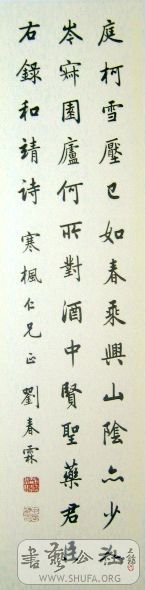 庭柯雪壓已如春乘興山陰亦少
岑寂園廬何所對酒中賢聖藥君臣
右錄和靖詩 寒楓仁兄正 劉春霖
WWW.SHUFA.ORG